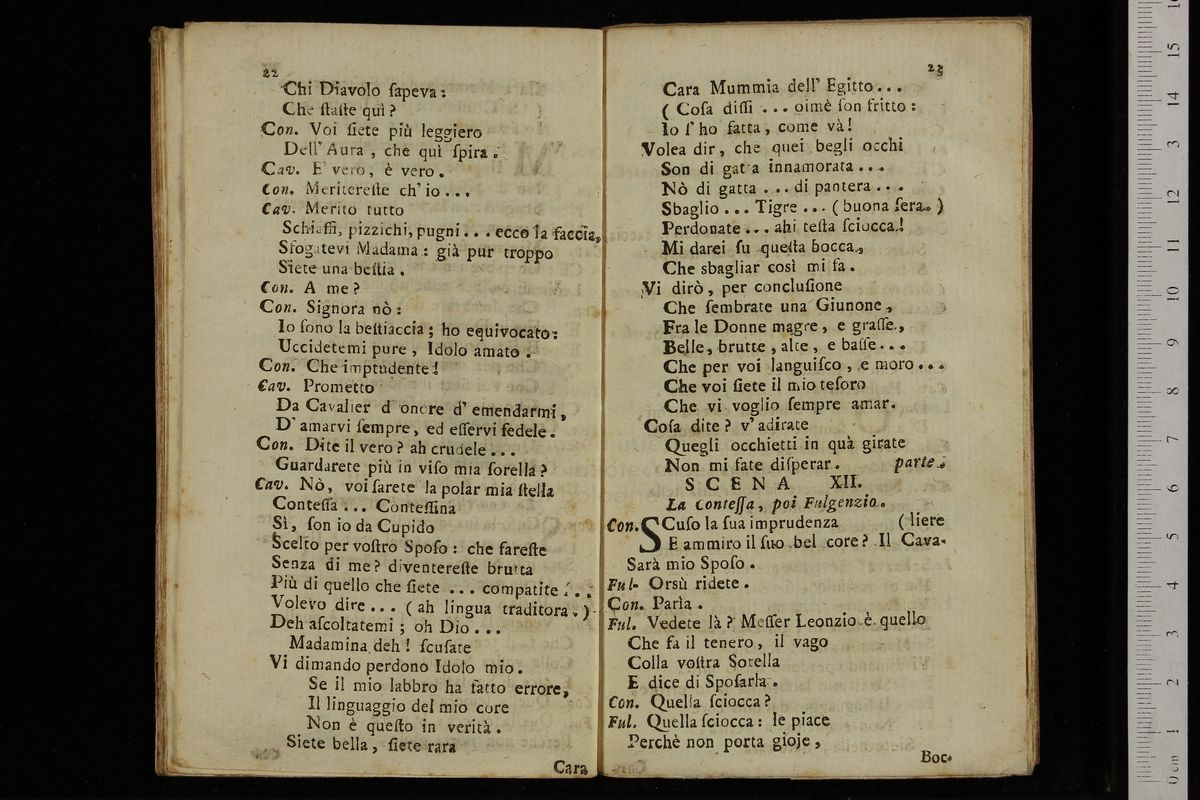 22
Chi Diavolo ſapeva:
Che ſtaſte quì?
Con. Voi ſiete più leggiero
Dell' Aura, che quì ſpira.
Cav. E' vero, è vero.
Con. Meritereſte ch' io...
Cav. Merito tutto
Schiaffi, pizzichi, pugni... ecco la faccia,
Sfogatevi Madama: già pur troppo
Siete una beſtia.
Con. A me?
Con. Signora nò:
Io ſono la beſtiaccia; ho equivocato:
Uccidetemi pure, Idolo amato.
Con. Che imptudente!
Cav. Prometto
Da Cavalier d'onore d' emendarmi,
D' amarvi ſempre, ed eſſervi fedele.
Con. Dite il vero? ah crudele...
Guardarete più in viſo mia ſorella?
Cav. Nò, voi ſarete la polar mia ſtella
Conteſſa... Conteſſina
Sì, ſon io da Cupido
Scelto per voſtro Spoſo: che fareſte
Senza di me? diventereſte brutta
Più di quello che ſiete... compatite...
Volevo dire... (ah lingua traditora.)
Deh aſcoltatemi; oh Dio...
Madamina deh! ſcuſate
Vi dimando perdono Idolo mio.
Se il mio labbro ha fatto errore,
Il linguaggio del mio core
Non è queſto in verità.
Siete bella, ſiete rara
Cara
23
Cara Mummia dell' Egitto...
(Coſa diſſi... oimè ſon fritto:
Io l' ho fatta, come và!
Volea dir, che quei begli occhi
Son di gatta innamorata...
Nò di gatta... di pantera...
Sbaglio... Tigre... (buona ſera.)
Perdonate... ahi teſta ſciocca!
Mi darei ſu queſta bocca,
Che sbagliar così mi fa.
Vi dirò, per concluſione
Che ſembrate una Giunone,
Fra le Donne magre, e graſſe,
Belle, brutte, alte, e baſſe...
Che per voi languiſco, e moro...
Che voi ſiete il mio teſoro
Che vi voglio ſempre amar.
Coſa dite? v' adirate
Quegli occhietti in quà girate
Non mi fate diſperar. parte.
SCENA XII.
La Conteſſa, poi Fulgenzio.
Con. SCuſo la ſua imprudenza (liere
E ammiro il ſuo bel core? Il Cava-
Sarà mio Spoſo.
Ful. Orsù ridete.
Con. Parla.
Ful. Vedete là? Meſſer Leonzio è quello
Che fa il tenero, il vago
Colla voſtra Sorella
E dice di Spoſarla.
Con. Quella ſciocca?
Ful. Quella ſciocca: le piace
Perchè non porta gioje,
Boc-
0 cm 1 2 3 4 5 6 7 8 9 10 11 12 13 14 15